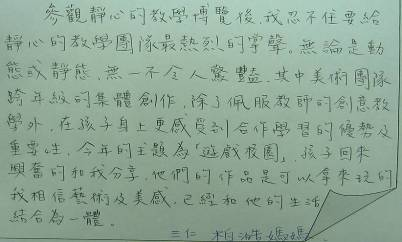 參觀靜心的教學博覽後,我忍不住要給
靜心的教學團隊最熱烈的掌聲。無論是動
態或靜態,無一不令人驚豔。其中美術團隊
跨年級的集體創作,除了佩服教師的創意教
學外,在孩子身上更感受到合作學習的優勢及
重要性。今年的主題為「遊戲校園」,孩子回來
興奮的和我分享,他們的作品是可以拿來玩的
我相信藝術及美感,已經和他的生活
結合為一體。
三仁 柏澔媽媽